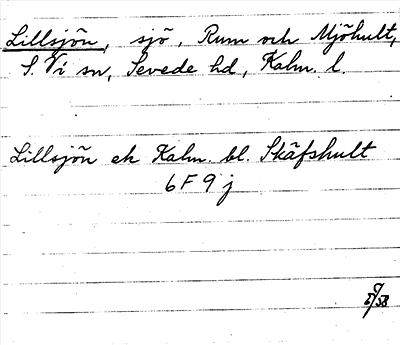 Lillsjön, sjö, Rum och Mjöhult,
S. Vi sn, Sevede hd, Kalm. l.
Lillsjön ek Kalm. bl. Skäfshult
6F9j